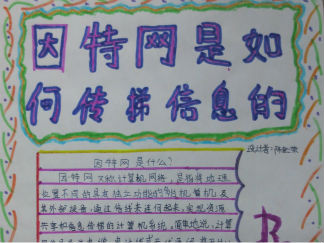 因特网是如
何传递信息的
因特网是什么?
因特网又称计算机网络,是指将地理
位置不同的具有独立功能的多台计算机及
其外部设备,通过通信线路连接起来,实现资源
共享和信息传递的计算机系统。简单地说,计算